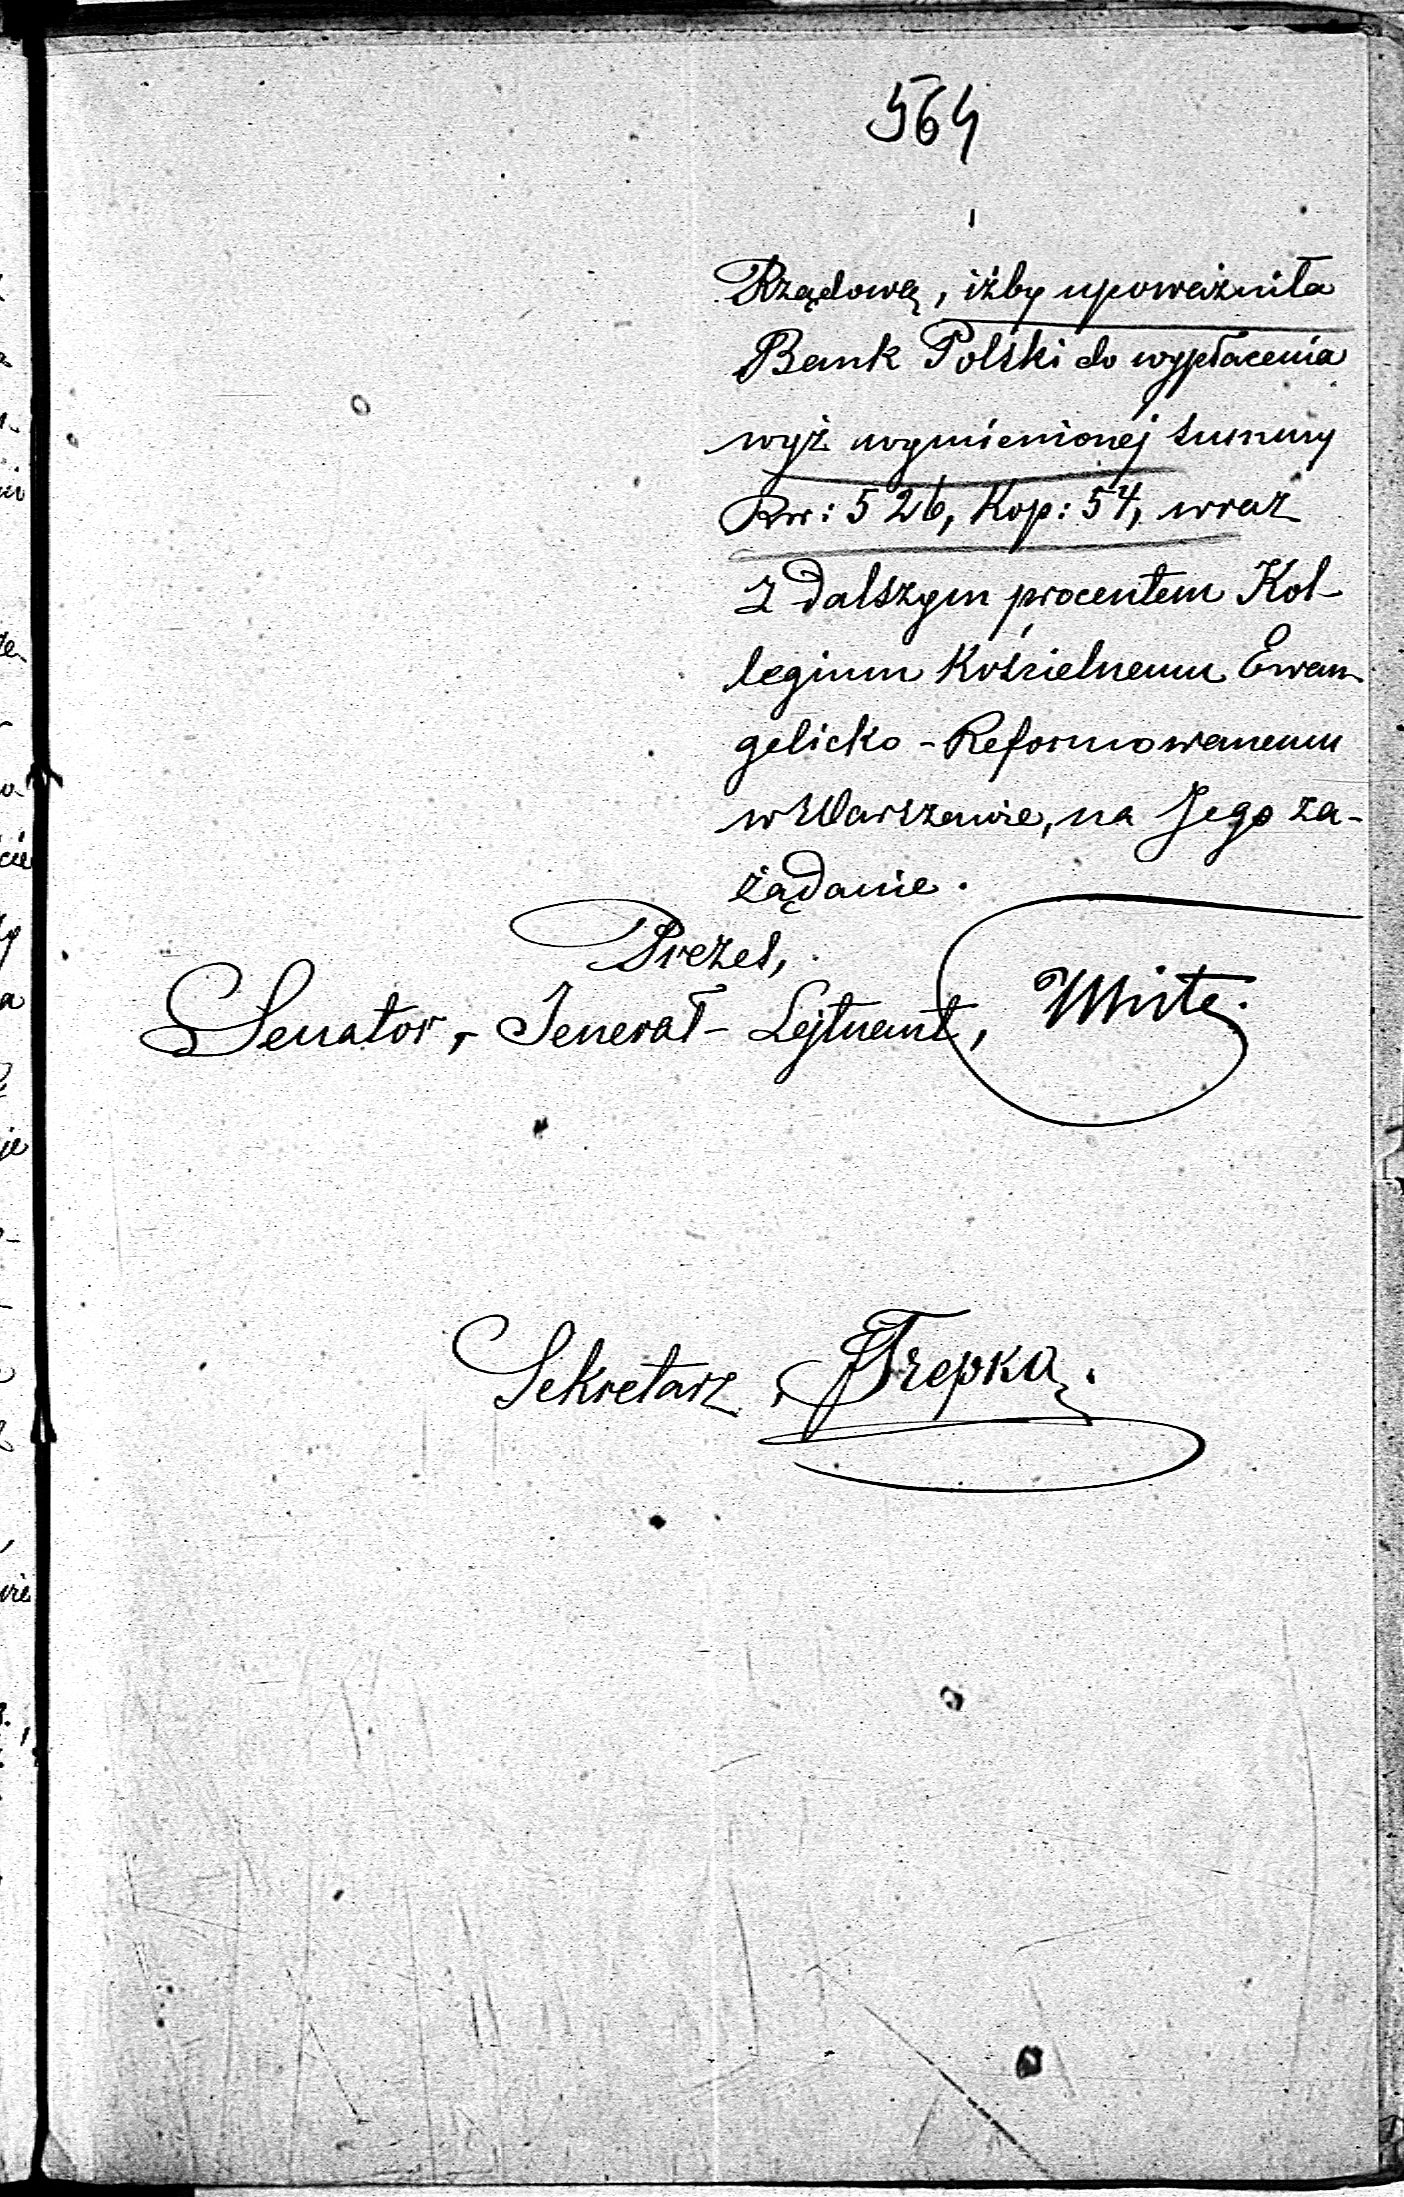 564
Rządową, iżby upoważniła
Bank Polski do wypłacenia
wyż wymienionej summy
Rsr: 526, Kop: 54, wraz
z dalszym procentem Kol-
legium Kościelnemu Ewan-
gelicko-Reformowanemu
w Warszawie, na Jego za-
żądanie.
Prezes,
Senator, Jenerał-Lejtnant,
Sekretarz, Trepka.